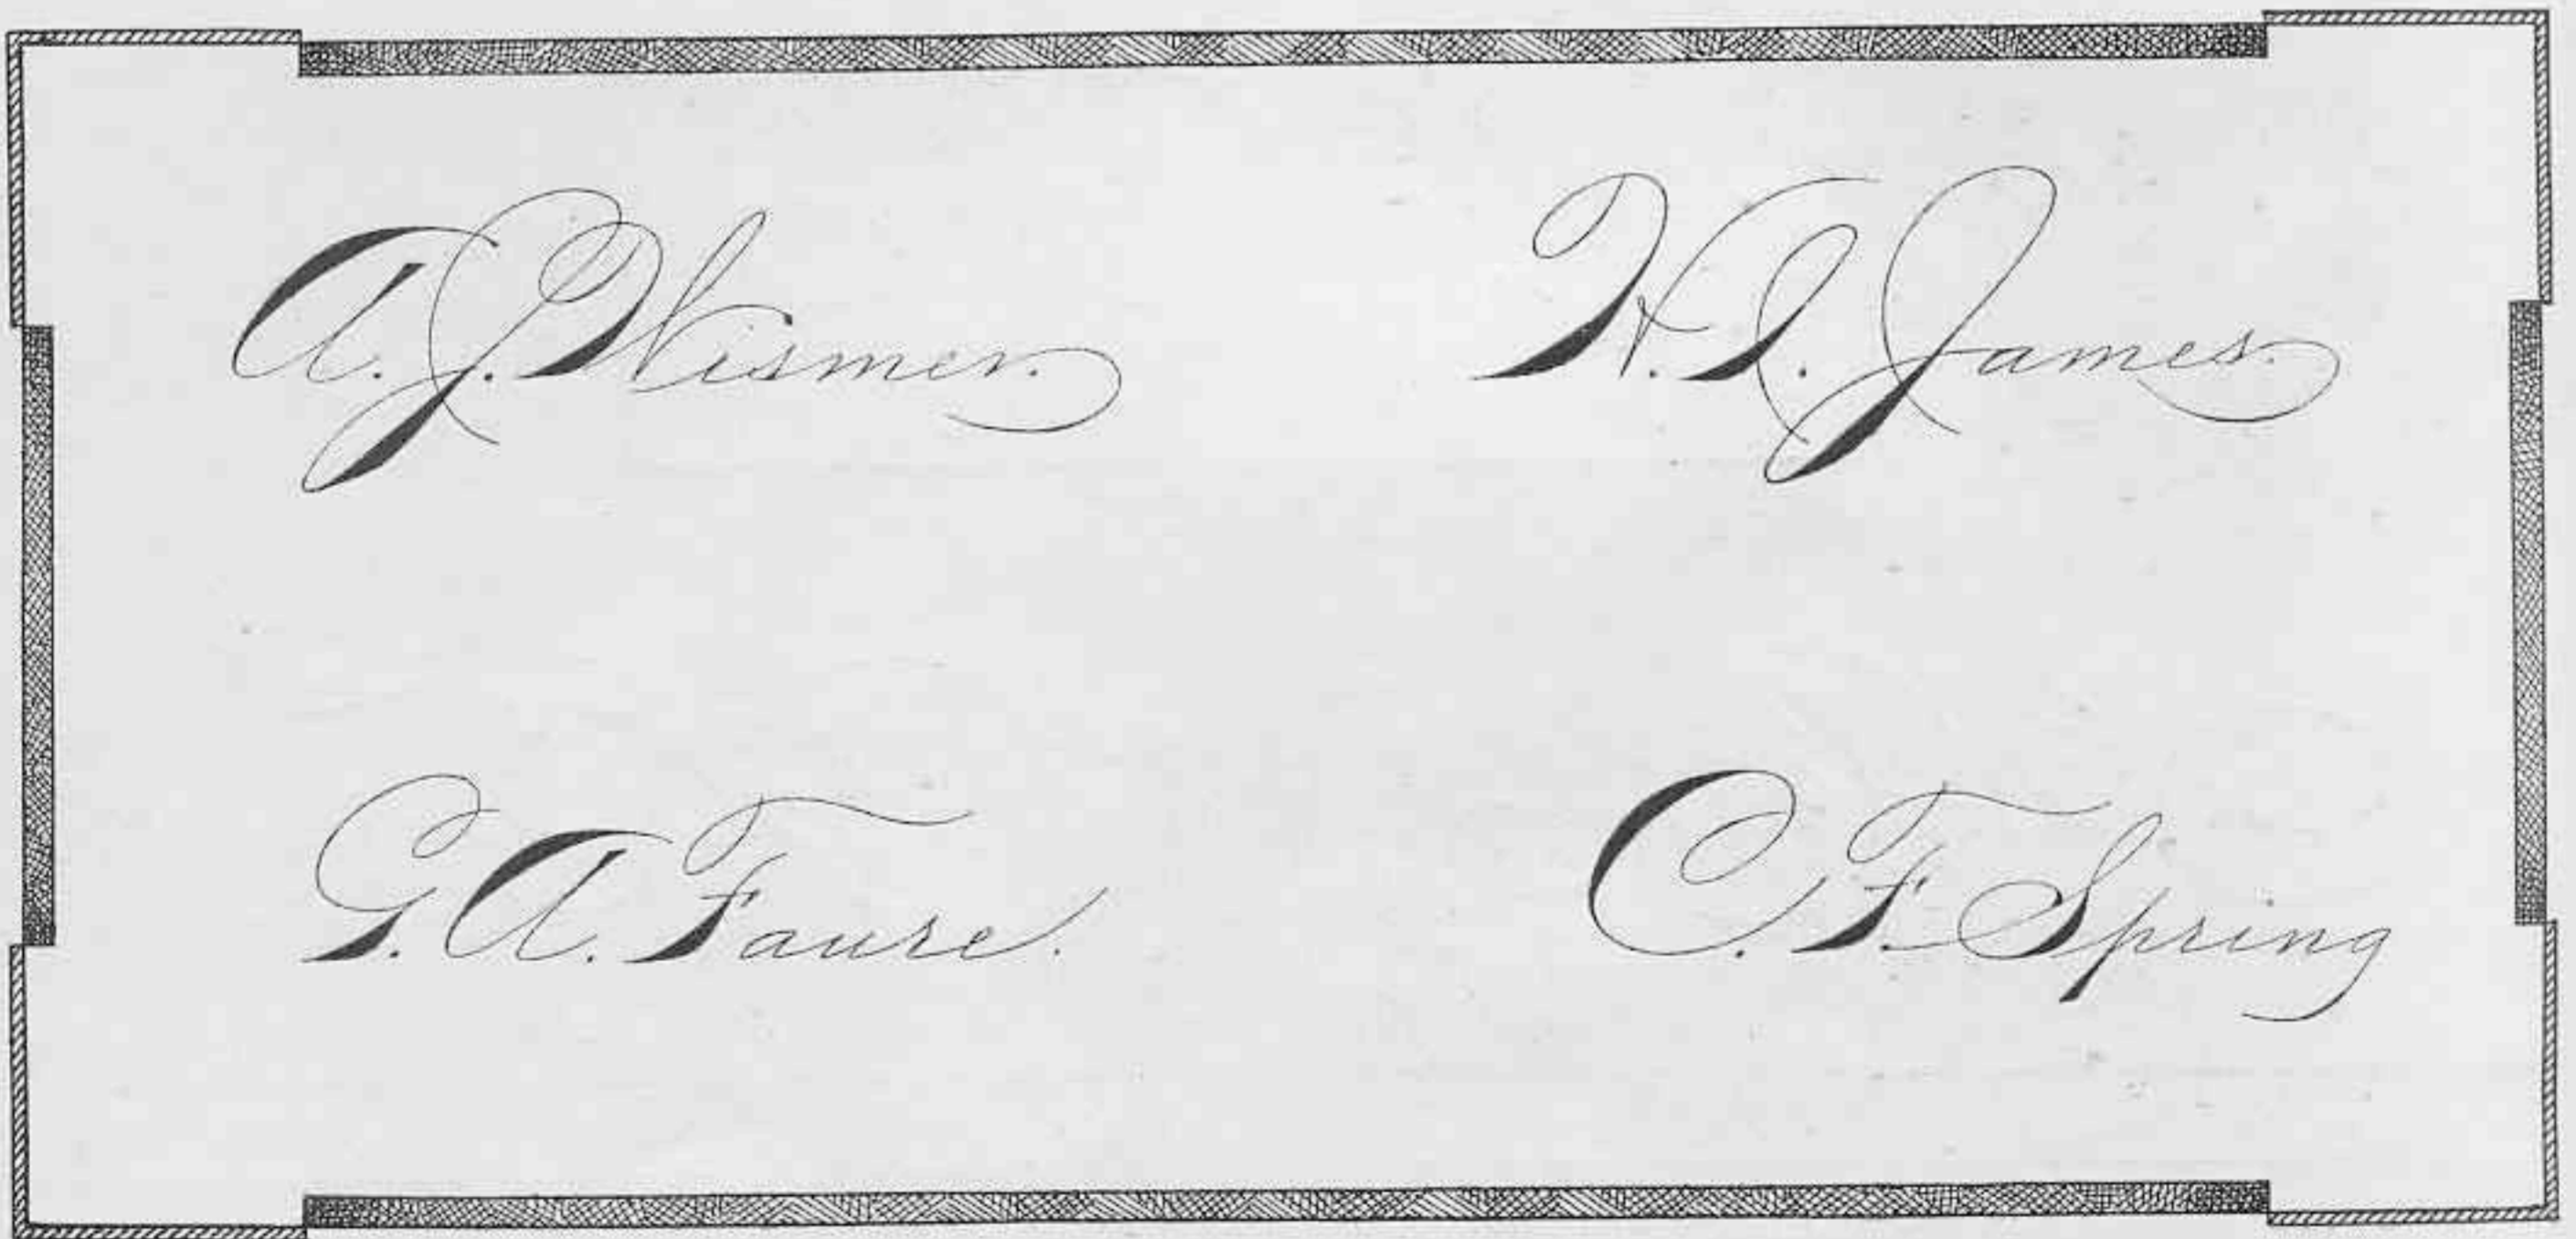 A. J. Wismer.
H. I. James.
G. A. Faure.
C. F. Spring